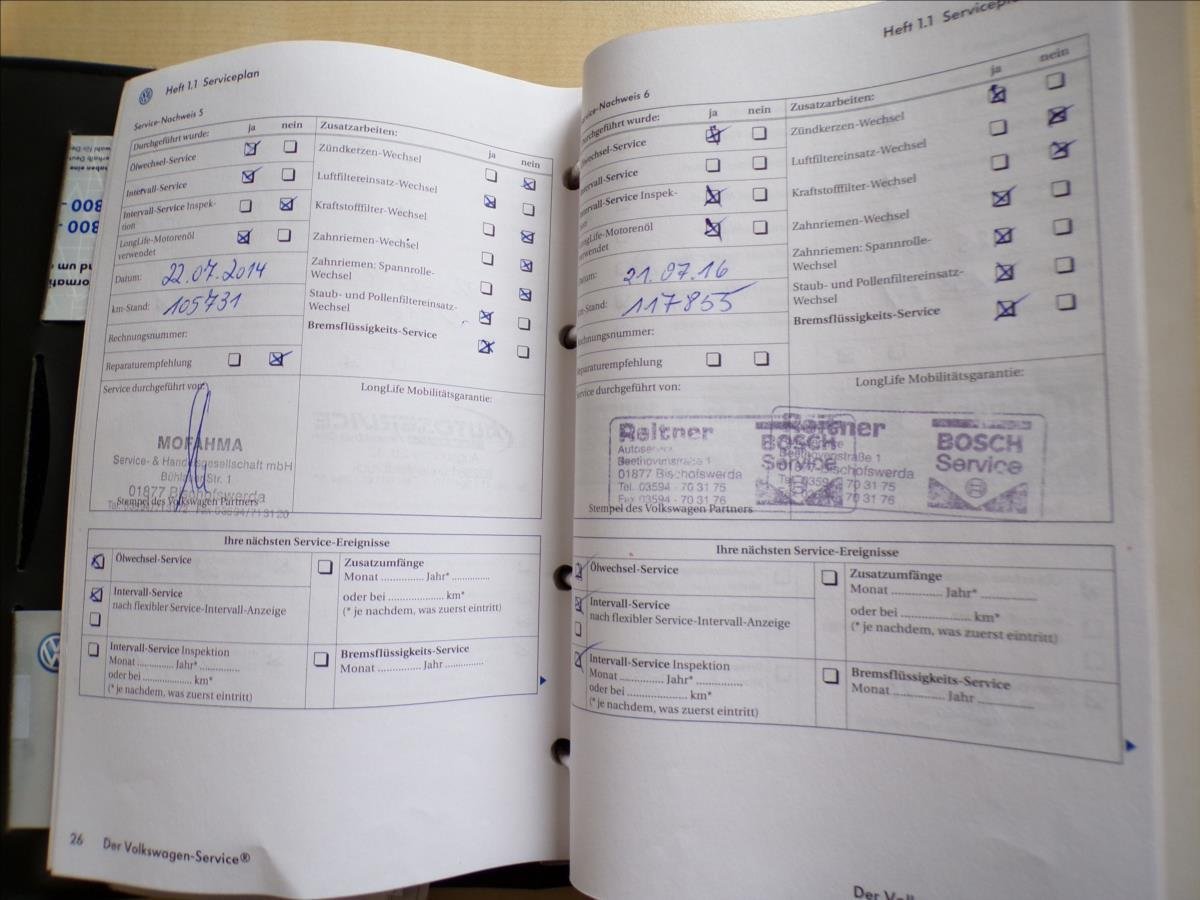 Heft 1.1 Serviceplan
Service-Nachweis 5
Durchgeführt wurde: ja nein
Ölwechsel-Service
Intervall-Service
Intervall-Service Inspek-
tion
LongLife-Motorenöl
verwendet
Datum: 22.07.2014
km-Stand: 105731
Rechnungsnummer:
Reparaturempfehlung
Zusatzarbeiten:
ja nein
Zündkerzen-Wechsel
Luftfiltereinsatz-Wechsel
Kraftstofffilter-Wechsel
Zahnriemen-Wechsel
Zahnriemen: Spannrolle-
Wechsel
Staub- und Pollenfiltereinsatz-
Wechsel
Bremsflüssigkeits-Service
Service durchgeführt von:
MOFAHMA
Service- & Handelsgesellschaft mbH
Str. 1
01877 Bischofswerda
Stempel des Volkswagen Partners
LongLife Mobilitätsgarantie:
Ihre nächsten Service-Ereignisse
Ölwechsel-Service
Intervall-Service
nach flexibler Service-Intervall-Anzeige
Intervall-Service Inspektion
Monat ............. Jahr* .............
oder bei .................... km*
(* je nachdem, was zuerst eintritt)
Zusatzumfänge
Monat .............. Jahr* .............
oder bei ...................... km*
(* je nachdem, was zuerst eintritt)
Bremsflüssigkeits-Service
Monat .............. Jahr .............
26 Der Volkswagen-Service®
Heft 1.1
Service-Nachweis 6
Durchgeführt wurde: ja nein
Ölwechsel-Service
Intervall-Service
Intervall-Service Inspek-
tion
LongLife-Motorenöl
verwendet
Datum: 21.07.16
km-Stand: 117855
Rechnungsnummer:
Reparaturempfehlung
Zusatzarbeiten: ja nein
Zündkerzen-Wechsel
Luftfiltereinsatz-Wechsel
Kraftstofffilter-Wechsel
Zahnriemen-Wechsel
Zahnriemen: Spannrolle-
Wechsel
Staub- und Pollenfiltereinsatz-
Wechsel
Bremsflüssigkeits-Service
Service durchgeführt von:
LongLife Mobilitätsgarantie:
Reitner
Autoservice
Beethovenstraße 1
01877 Bischofswerda
Tel. 03594 - 70 31 75
Fax 03594 - 70 31 76
BOSCH
Service
Reitner
Beethovenstraße 1
Bischofswerda
Tel. 03594 - 70 31 75
70 31 76
BOSCH
Service
Stempel des Volkswagen Partners
Ihre nächsten Service-Ereignisse
Ölwechsel-Service
Intervall-Service
nach flexibler Service-Intervall-Anzeige
Intervall-Service Inspektion
Monat ............. Jahr* .............
oder bei .................... km*
(* je nachdem, was zuerst eintritt)
Zusatzumfänge
Monat .............. Jahr* .............
oder bei ...................... km*
(* je nachdem, was zuerst eintritt)
Bremsflüssigkeits-Service
Monat .............. Jahr .............